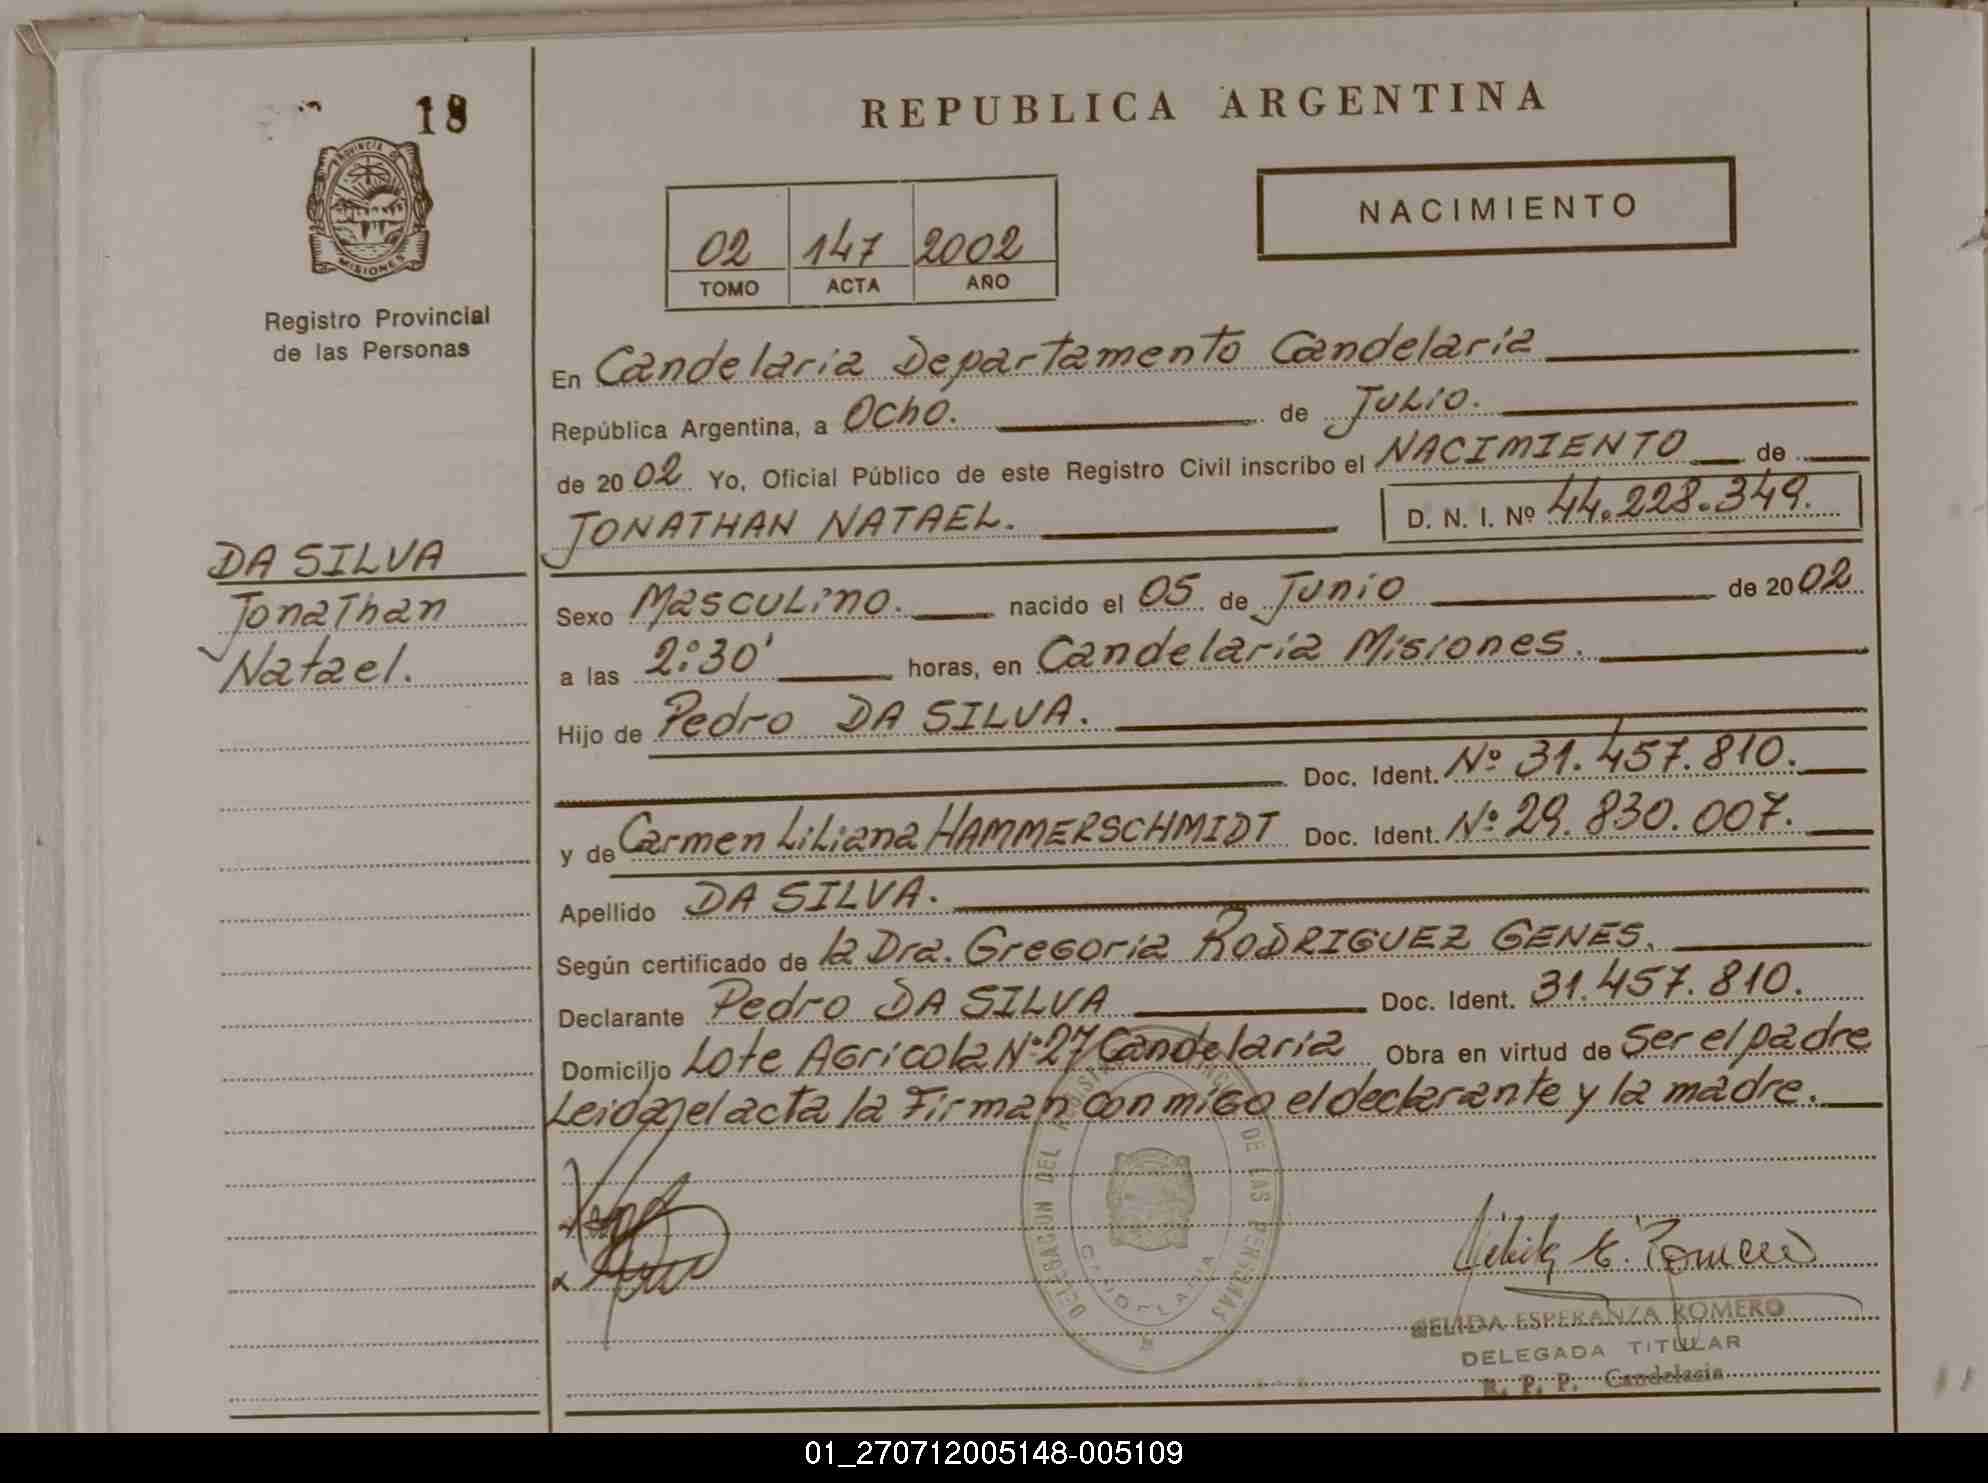 18
REPUBLICA ARGENTINA
PROVINCIA DE
MISIONES
Registro Provincial
de las Personas
02 147 2002
TOMO ACTA AÑO
NACIMIENTO
En Candelaria Departamento Candelaria
República Argentina, a Ocho. de Julio.
de 2002 Yo, Oficial Público de este Registro Civil inscribo el NACIMIENTO de
JONATHAN NATAEL. D. N. I. Nº 44.228.349.
DA SILVA
Jonathan
Natael.
Sexo Masculino. nacido el 05 de Junio de 2002
a las 2:30' horas, en Candelaria Misiones.
Hijo de Pedro DA SILVA.
Doc. Ident. Nº 31.457.810.
y de Carmen Liliana HAMMERSCHMIDT Doc. Ident. Nº 29.830.007.
Apellido DA SILVA.
Según certificado de la Dra. Gregoria RODRIGUEZ GENES.
Declarante Pedro DA SILVA Doc. Ident. 31.457.810.
Domicilio Lote Agricola Nº 27 Candelaria Obra en virtud de ser el padre
Leida el acta la Firman con migo el declarante y la madre.
DELEGACION DEL REGISTRO PROVINCIAL DE LAS PERSONAS
CANDELARIA
Nelida E. Romero
NELIDA ESPERANZA ROMERO
DELEGADA TITULAR
R. P. P. Candelaria
01_270712005148-005109